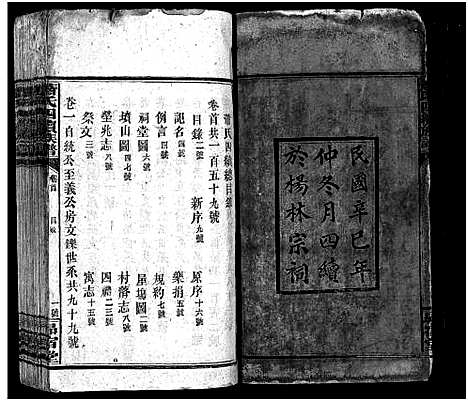 民國辛巳年
仲冬月四續
於楊林宗祠
氏四續總目錄
卷首共一百五十九號
目錄二號
新序九號
原序十六號
記名四號
樂捐五號
例言二號
規約七號
祠堂圖六號
屋場圖二號
墳山圖四七號
村落志八號
塋兆志八號
四禮二三號
祭文三號
寓志十五號
卷一自統公至義公房文鑠世系共九十九號
氏四續族譜
卷首
目錄
一號